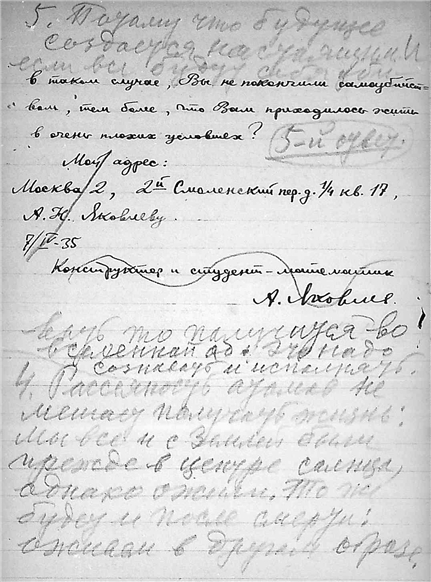 5. Потому что будущее
создается настоящим. И
если вы будете
в таком случае, Вы не покончили самоубийст-
вом, тем более, что Вам приходилось жить
в очень плохих условиях?
5-й ответ.
Мой адрес:
Москва 2, 2й Смоленский пер. д. 1/4 кв. 17,
А. Н. Яковлеву.
7/IV-35
Конструктор и студент-математик
А. Яковлев.
то получится во
вселенной ад. Это надо
сознавать и исполнять.
4. Рассеянность атомов не
мешает получать жизнь:
мы все и с Землей были
прежде в центре солнца,
однако ожили. То же
будет и после смерти:
ожидаем в другом образе.